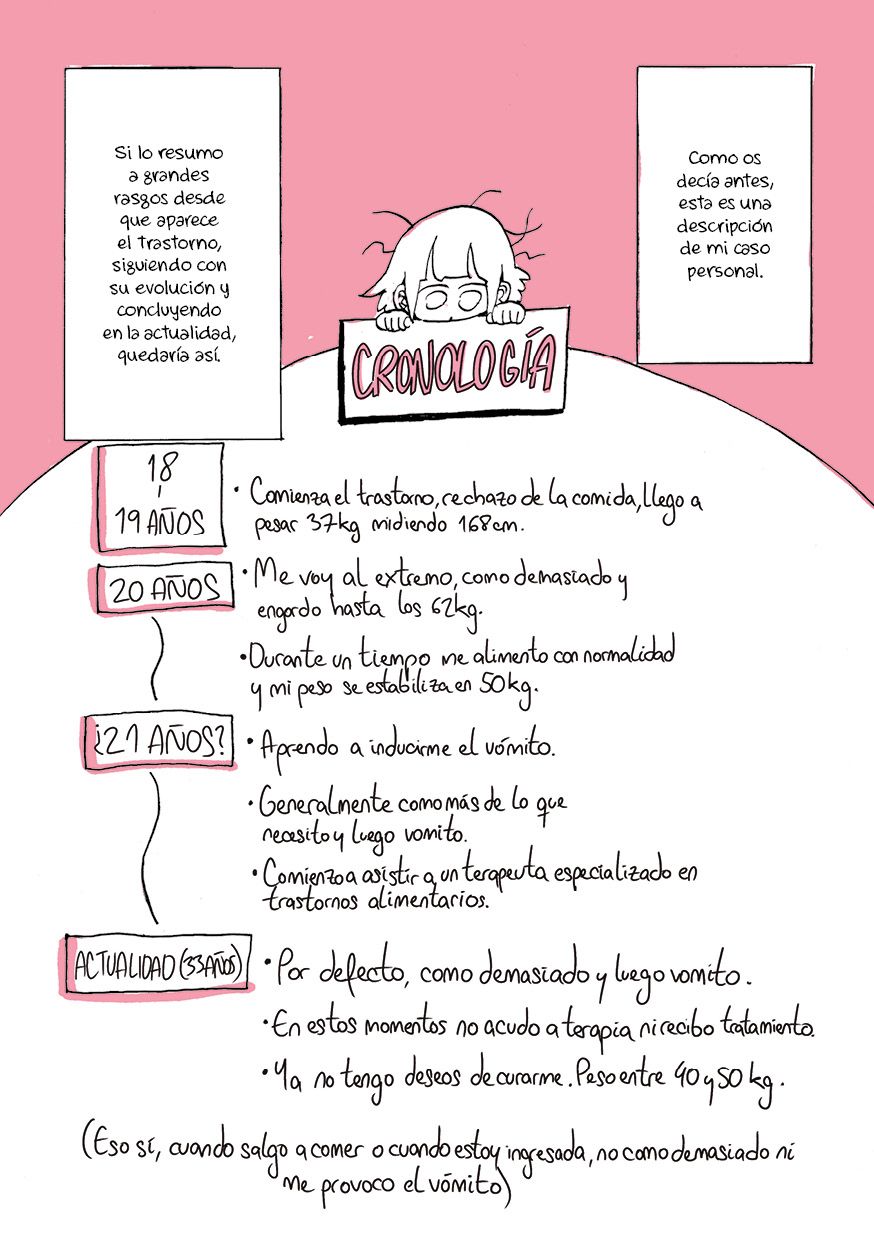 Como os
decía antes,
esta es una
descripción
de mi caso
personal.
Si lo resumo
a grandes
rasgos desde
que aparece
el trastorno,
siguiendo con
su evolución y
concluyendo
en la actualidad,
quedaría así.
CRONOLOGÍA
18
-
19 AÑOS
• Comienza el trastorno, rechazo de la comida, llego a
pesar 37kg midiendo 168cm.
20 AÑOS
• Me voy al extremo, como demasiado y
engordo hasta los 62kg.
• Durante un tiempo me alimento con normalidad
y mi peso se estabiliza en 50kg.
¿21 AÑOS?
• Aprendo a inducirme el vómito.
• Generalmente como más de lo que
necesito y luego vomito.
• Comienzo a asistir a un terapeuta especializado en
trastornos alimentarios.
ACTUALIDAD (33 AÑOS)
• Por defecto, como demasiado y luego vomito.
• En estos momentos no acudo a terapia ni recibo tratamiento.
• Ya no tengo deseos de curarme. Peso entre 40 y 50 kg.
(Eso sí, cuando salgo a comer o cuando estoy ingresada, no como demasiado ni
me provoco el vómito)